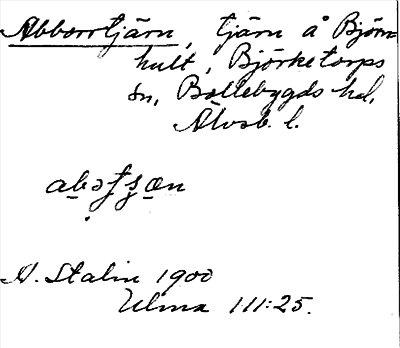 Abborrtjärn, tjärn å Björn-
hult, Björketorps
sn, Bollebygds hd,
Älvsb. l.
N. Stalin 1900
Ulma 111:25.